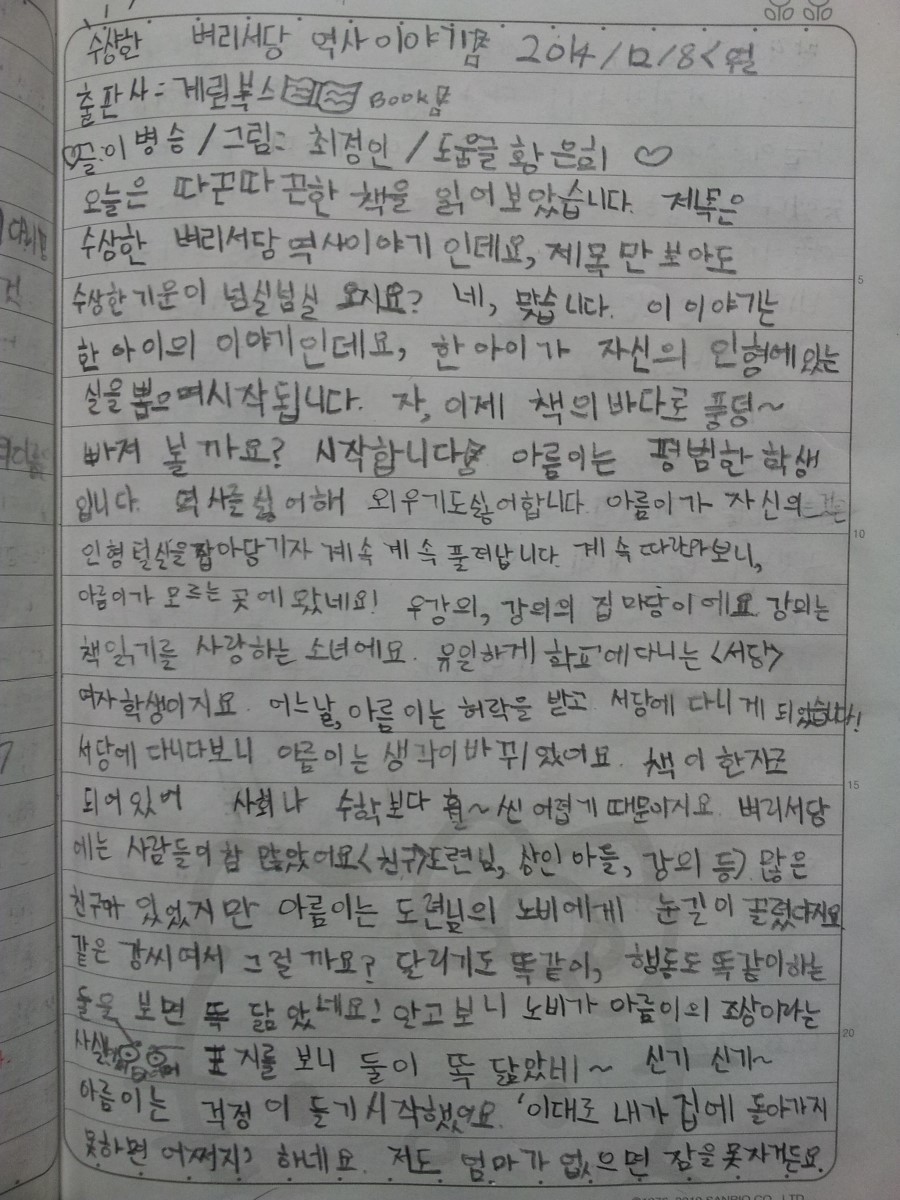 수상한 벼리서당 역사이야기 2014/12/8<월
출판사: 계림북스 BOOK
글:이병승/그림: 최정인/도움글 황은희
오늘은 따끈따끈한 책을 읽어보았습니다. 제목은
수상한 벼리서당 역사이야기 인데요, 제목만 보아도
수상한기운이 넘실넘실 오지요? 네, 맞습니다. 이 이야기는
한 아이의 이야기인데요, 한 아이가 자신의 인형에있는
실을 뽑으며시작됩니다. 자, 이제 책의바다로 풍덩~
빠져 볼까요? 시작합니다 아름이는 평범한 학생
입니다. 역사를 싫어해 외우기도싫어합니다. 아름이가 자신의
인형털실을잡아당기자 계속 계속 풀려납니다. 계속 따라와보니,
아름이가 모르는 곳에 왔네요! 우강의, 강의의 집 마당이에요 강의는
책읽기를 사랑하는 소녀에요. 유일하게 학교에다니는 <서당>
여자학생이지요. 어느날, 아름이는 허락을 받고 서당에 다니게 되었습니다!
서당에 다니다보니 아름이는 생각이바뀌었어요. 책이 한자로
되어있어 사회나 수학보다 훨~씬 어렵게 때문이지요. 벼리서당
에는 사람들이 참 많았어요<친구>도련님, 상인 아들, 강의 등) 많은
친구가 있었지만 아름이는 도련님의 노비에게 눈길이 끌렸다지요
같은 강씨여서 그럴까요? 달리기도 똑같이, 행동도 똑같이하는
둘을 보면 똑 닮았네요! 알고보니 노비가 아름이의 조상이라는
사실 표지를 보니 둘이 똑 닮았네~ 신기 신기~
아름이는 걱정이 들기시작했어요. '이대로 내가 집에 돌아가지
못하면 어쩌지? 하네요. 저도 엄마가 없으면 잠을못자거든요.